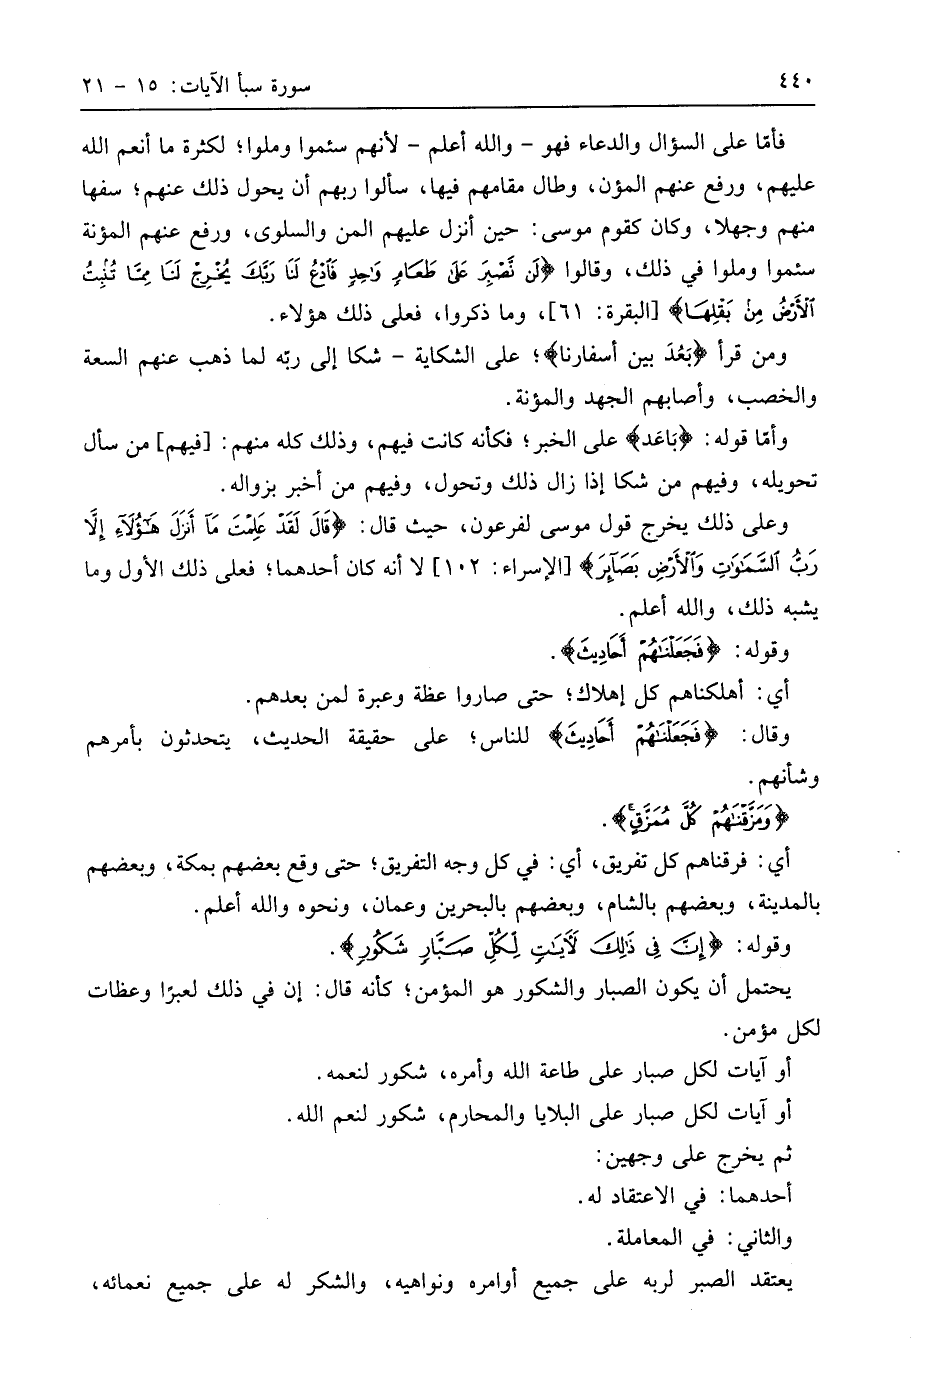 ٤٤٠ سورة سبأ الآيات: ١٥ - ٢١
فأمّا على السؤال والدعاء فهو - والله أعلم - لأنهم سئموا وملوا؛ لكثرة ما أنعم الله
عليهم، ورفع عنهم المؤن، وطال مقامهم فيها، سألوا ربهم أن يحول ذلك عنهم؛ سفها
منهم وجهلا، وكان كقوم موسى: حين أنزل عليهم المن والسلوى، ورفع عنهم المؤنة
سئموا وملوا في ذلك، وقالوا ﴿لَن نَّصْبِرَ عَلَىٰ طَعَامٍ وَٰحِدٍ فَٱدْعُ لَنَا رَبَّكَ يُخْرِجْ لَنَا مِمَّا تُنۢبِتُ
ٱلْأَرْضُ مِنۢ بَقْلِهَا﴾ [البقرة: ٦١]، وما ذكروا، فعلى ذلك هؤلاء.
ومن قرأ ﴿بَعُدَ بين أسفارنا﴾؛ على الشكاية - شكا إلى ربّه لما ذهب عنهم السعة
والخصب، وأصابهم الجهد والمؤنة.
وأمّا قوله: ﴿بَاعَد﴾ على الخبر؛ فكأنه كانت فيهم، وذلك كله منهم: [فيهم] من سأل
تحويله، وفيهم من شكا إذا زال ذلك وتحول، وفيهم من أخبر بزواله.
وعلى ذلك يخرج قول موسى لفرعون، حيث قال: ﴿قَالَ لَقَدْ عَلِمْتَ مَآ أَنزَلَ هَٰٓؤُلَآءِ إِلَّا
رَبُّ ٱلسَّمَٰوَٰتِ وَٱلْأَرْضِ بَصَآئِرَ﴾ [الإسراء: ١٠٢] لا أنه كان أحدهما؛ فعلى ذلك الأول وما
يشبه ذلك، والله أعلم.
وقوله: ﴿فَجَعَلْنَٰهُمْ أَحَادِيثَ﴾.
أي: أهلكناهم كل إهلاك؛ حتى صاروا عظة وعبرة لمن بعدهم.
وقال: ﴿فَجَعَلْنَٰهُمْ أَحَادِيثَ﴾ للناس؛ على حقيقة الحديث، يتحدثون بأمرهم
وشأنهم.
﴿وَمَزَّقْنَٰهُمْ كُلَّ مُمَزَّقٍ﴾.
أي: فرقناهم كل تفريق، أي: في كل وجه التفريق؛ حتى وقع بعضهم بمكة، وبعضهم
بالمدينة، وبعضهم بالشام، وبعضهم بالبحرين وعمان، ونحوه والله أعلم.
وقوله: ﴿إِنَّ فِى ذَٰلِكَ لَآيَٰتٍ لِّكُلِّ صَبَّارٍ شَكُورٍ﴾.
يحتمل أن يكون الصبار والشكور هو المؤمن؛ كأنه قال: إن في ذلك لعبرًا وعظات
لكل مؤمن.
أو آيات لكل صبار على طاعة الله وأمره، شكور لنعمه.
أو آيات لكل صبار على البلايا والمحارم، شكور لنعم الله.
ثم يخرج على وجهين:
أحدهما: في الاعتقاد له.
والثاني: في المعاملة.
يعتقد الصبر لربه على جميع أوامره ونواهيه، والشكر له على جميع نعمائه،